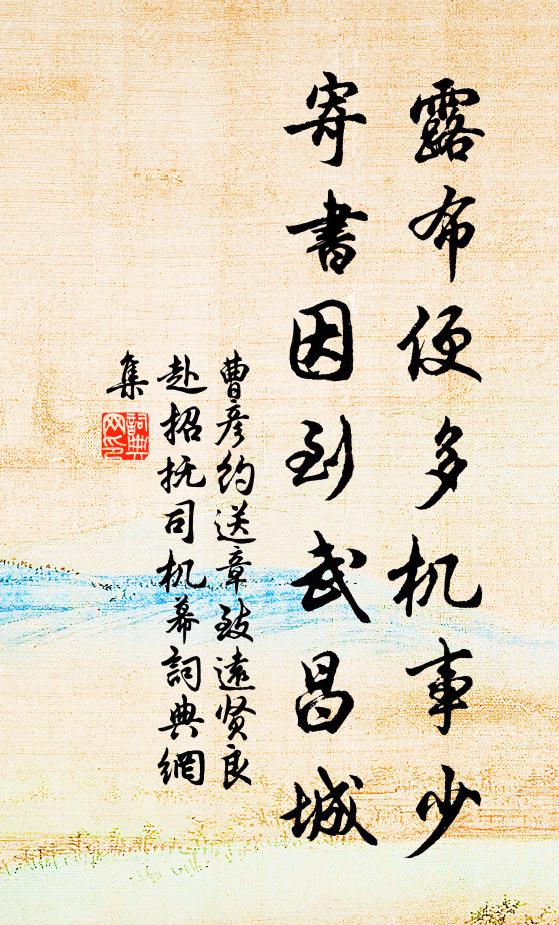 露布便多机事少
寄書因到武昌城
曹彦约送章致遠贤良
赴招抚司机幕詞典網
集
詞典
网印